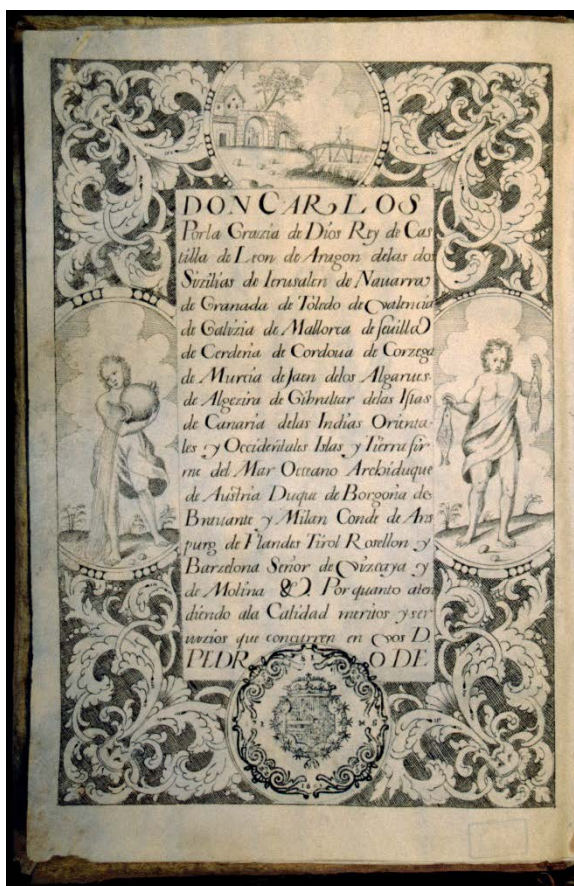 DON CARLOS
Por la Grazia de Dios Rey de Cas
tilla de Leon de Aragon delas dos
Sizilias de Ierusalen de Nauarra
de Granada de Toledo de Valencia
de Galizia de Mallorca de seuilla
de Cerdeña de Cordoua de Corzega
de Murcia de Jaen delos Algarues
de Algezira de Gibraltar delas Islas
de Canaria delas Indias Orienta
les y Occidentales Islas y Tierra fir
me del Mar Occeano Archiduque
de Austria Duque de Borgoña de
Brauante y Milan Conde de Ans
purg de Flandes Tirol Rosellon y
Barzelona Señor de Vizcaya y
de Molina & Por quanto aten
diendo ala Calidad meritos y ser
uizios que concurren en vos D.
PEDRO DE